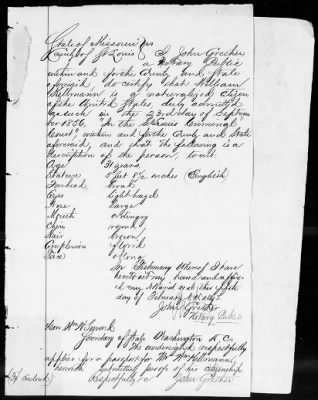 State of Missouri } ss
County of St Louis } I, John Grether
a Notary Public
within and for the County and State
aforesaid, do certify that William
Kellmann is a naturalized citizen
of the United States, duly admitted
as such on the 23rd day of Septem
ber 1856, in the "St Louis Criminal
Court," within and for the County and State
aforesaid, and that the following is a
description of the person, to wit:
Age 31 years
Stature 5 feet 8 1/2 inches (English)
Forehead broad
Eyes light hazel
Nose large
Mouth ordinary
Chin round
Hair brown
Complexion florid
Face oblong
In Testimony Whereof I have
hereto set my hand and affixed
my Notarial seal this
day of February A.D.
John Grether
Notary Public
Hon. Wm H. Seward
Secretary of State Washington D. C.
The undersigned respectfully
applies for a passport for Mr Wm Kellmann,
herewith submitting proofs of his citizenship
Respectfully &c John Grether